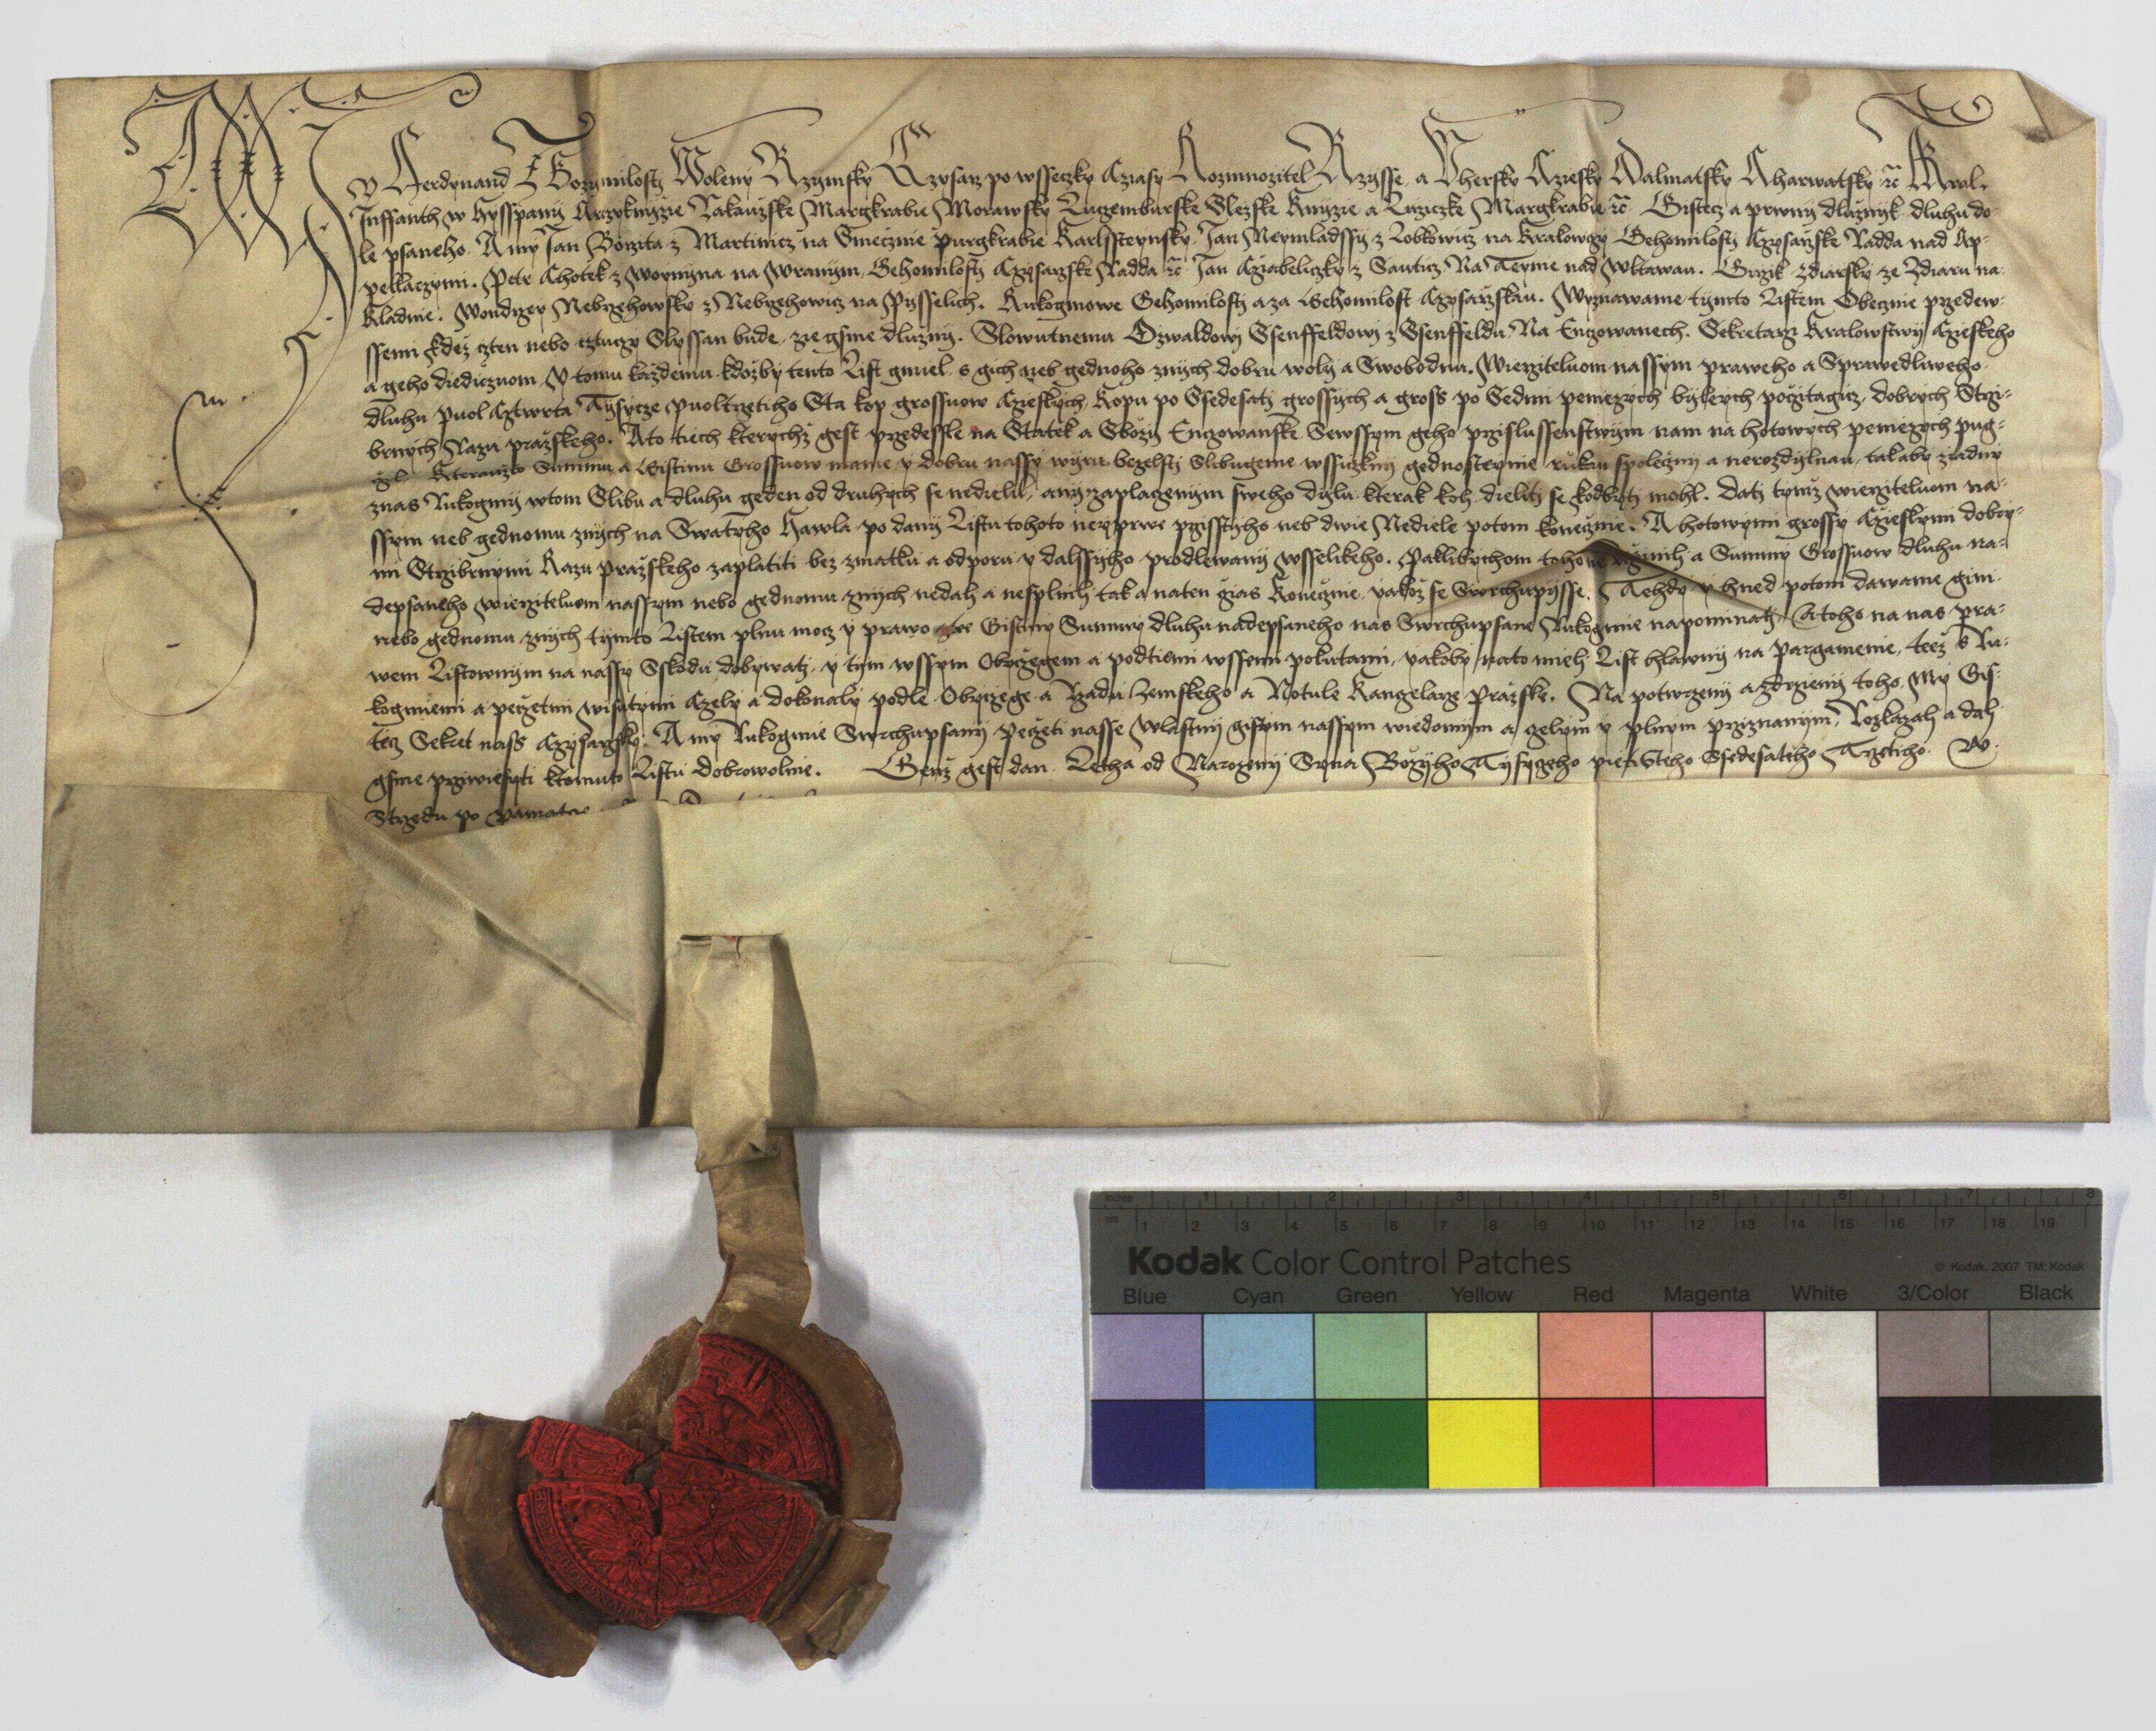 My Ferdynand z Boży milosti Woleny Rzymsky Czysarz po wsseczky Cziasy Rozmnozitel Rzysse, a Vhersky Cziesky Dalmatsky Charwatsky ꝛc̃ Kral.
Inffanth w Hysspany Arcyknyzie Rakauzske Margkrabie Morawsky Luczemburske Slezske Knyzie a Luziczke Margkrabie ꝛc̃ Gistecz a prwny dluznyk dluhu do-
le psaneho. A my Jan Borzita z Martinicz na Smecznie Purgkrabie Karlssteynsky. Jan Neymladssy z Lobkowicz na Kralowczy Gehomilosti Czysarzske Radda nad Ap-
pellaczymi. Petr Chotek z Woynyna na Wranym, Gehomilosti Czysarzske Radda ꝛc̃ Jan Cziabeliczky z Sauticz Na Teyme nad Wltawau. Girzik Zdiarsky ze Zdiaru na
Kladnie. Wondrzey Nebrzehowsky z Nebrzehowicz na Pysselich. Rukogmowe Gehomilosti a za Gehomilost Czysarzskau. Wyznawame tymto Listem Obecznie przedew-
ssemi kdez czten nebo cztuczy Slyssan bude, ze gsme dluzni. Slowutnemu Ozwaldowi Ssenffeldowi z Ssenffeldu Na Enczowanech. Sekretarzi Kralowstwij Czieskeho
a geho diediczuom, y tomu kazdemu kdozby tento List gmiel, s gich neb gednoho znych dobru woly a Swobodnu, Wierziteluom nassym praweho a Sprawedliweho
dluhu puol Cztwrta Tysycze puoltrzetiho Sta kop grossuow Czieskych, Kopu po Ssedesati grossych a gross po Sedmi peniezych bylych poczitagicz, dobrych Strzi-
brnych Razu prazskeho. A to tiech kterychz gest przedessle na Statek a Sbozy Enczowanske Sewssym geho przislussenstwym nam na hotowych peniezych pug-
czil. Kterauzto Summu a Gistinu Grossuow mame y dobru nassy wyru bezelsti Slibugeme wssiczkni gednosteynie rukau spolecznu a nerozdylnau, takaby ziadny
znas Rukogmy wtom Slibu a dluhu geden od druhych se nedielil, any zaplaczenym sweho dylu kterak koli dieliti se kdobyti mohl. Dati tymz wierziteluom na-
ssym neb gednomu znych na Swateho Hawla po dany Listu tohoto neyprwe przisstyho neb dwie Nediele potom koneznie. A hotowymi grossy Czieskymi dobry-
mi Strzibrnymi Razu prazskeho zaplatiti bez zmatku a odporu y dalssyho prodlewany wsselikeho. Paklibychom toho neuczinili a Summy Grossuow dluhu na-
depsaneho wierziteluom nassym nebo gednomu znych nedali a nesplnili tak a naten czias Konecznie yakoz se Swrchupysse. Tehdy y hned potom dawame gim
nebo gednomu znych tymto Listem plnu mocz y prawo Gistiny Summy dluhu nadepsaneho nas Swrchupsane Rukogmie napominati, A toho na nas pra-
wem Listownym na nassy Sskodu dobywati, y tym wssym Obyczegem a podtiemi wssemi pokutami, yakoby nato mieli List hlawny na Pargamenie, teez s Ru-
kogmiemi a peczetmi wisutymi Czely a dokonaly podle Obyczege a Rzadu Zemskeho a Notule Kanczelarze Prazske. Na potwrzeny a zdrzieny toho, My Gis-
tecz Sekret nass Czysarzsky. A my Rukogmie Swrchupsany Peczeti nasse wlastny gistym nassym wiedomym a czelym y plnym prziznanym, Rozkazali a dali
gsme przywiesyti ktomuto Listu dobrowolnie. Genz gest dan Letha od Narozeny Syna Bozyho Tysyczeho pietisteho Ssedesateho Trzetiho W
Strzedu po pamatce
Kodak Color Control Patches
© Kodak, 2007 TM: Kodak
Inches 1 2 3 4 5 6 7 8
cm 1 2 3 4 5 6 7 8 9 10 11 12 13 14 15 16 17 18 19
Blue Cyan Green Yellow Red Magenta White 3/Color Black